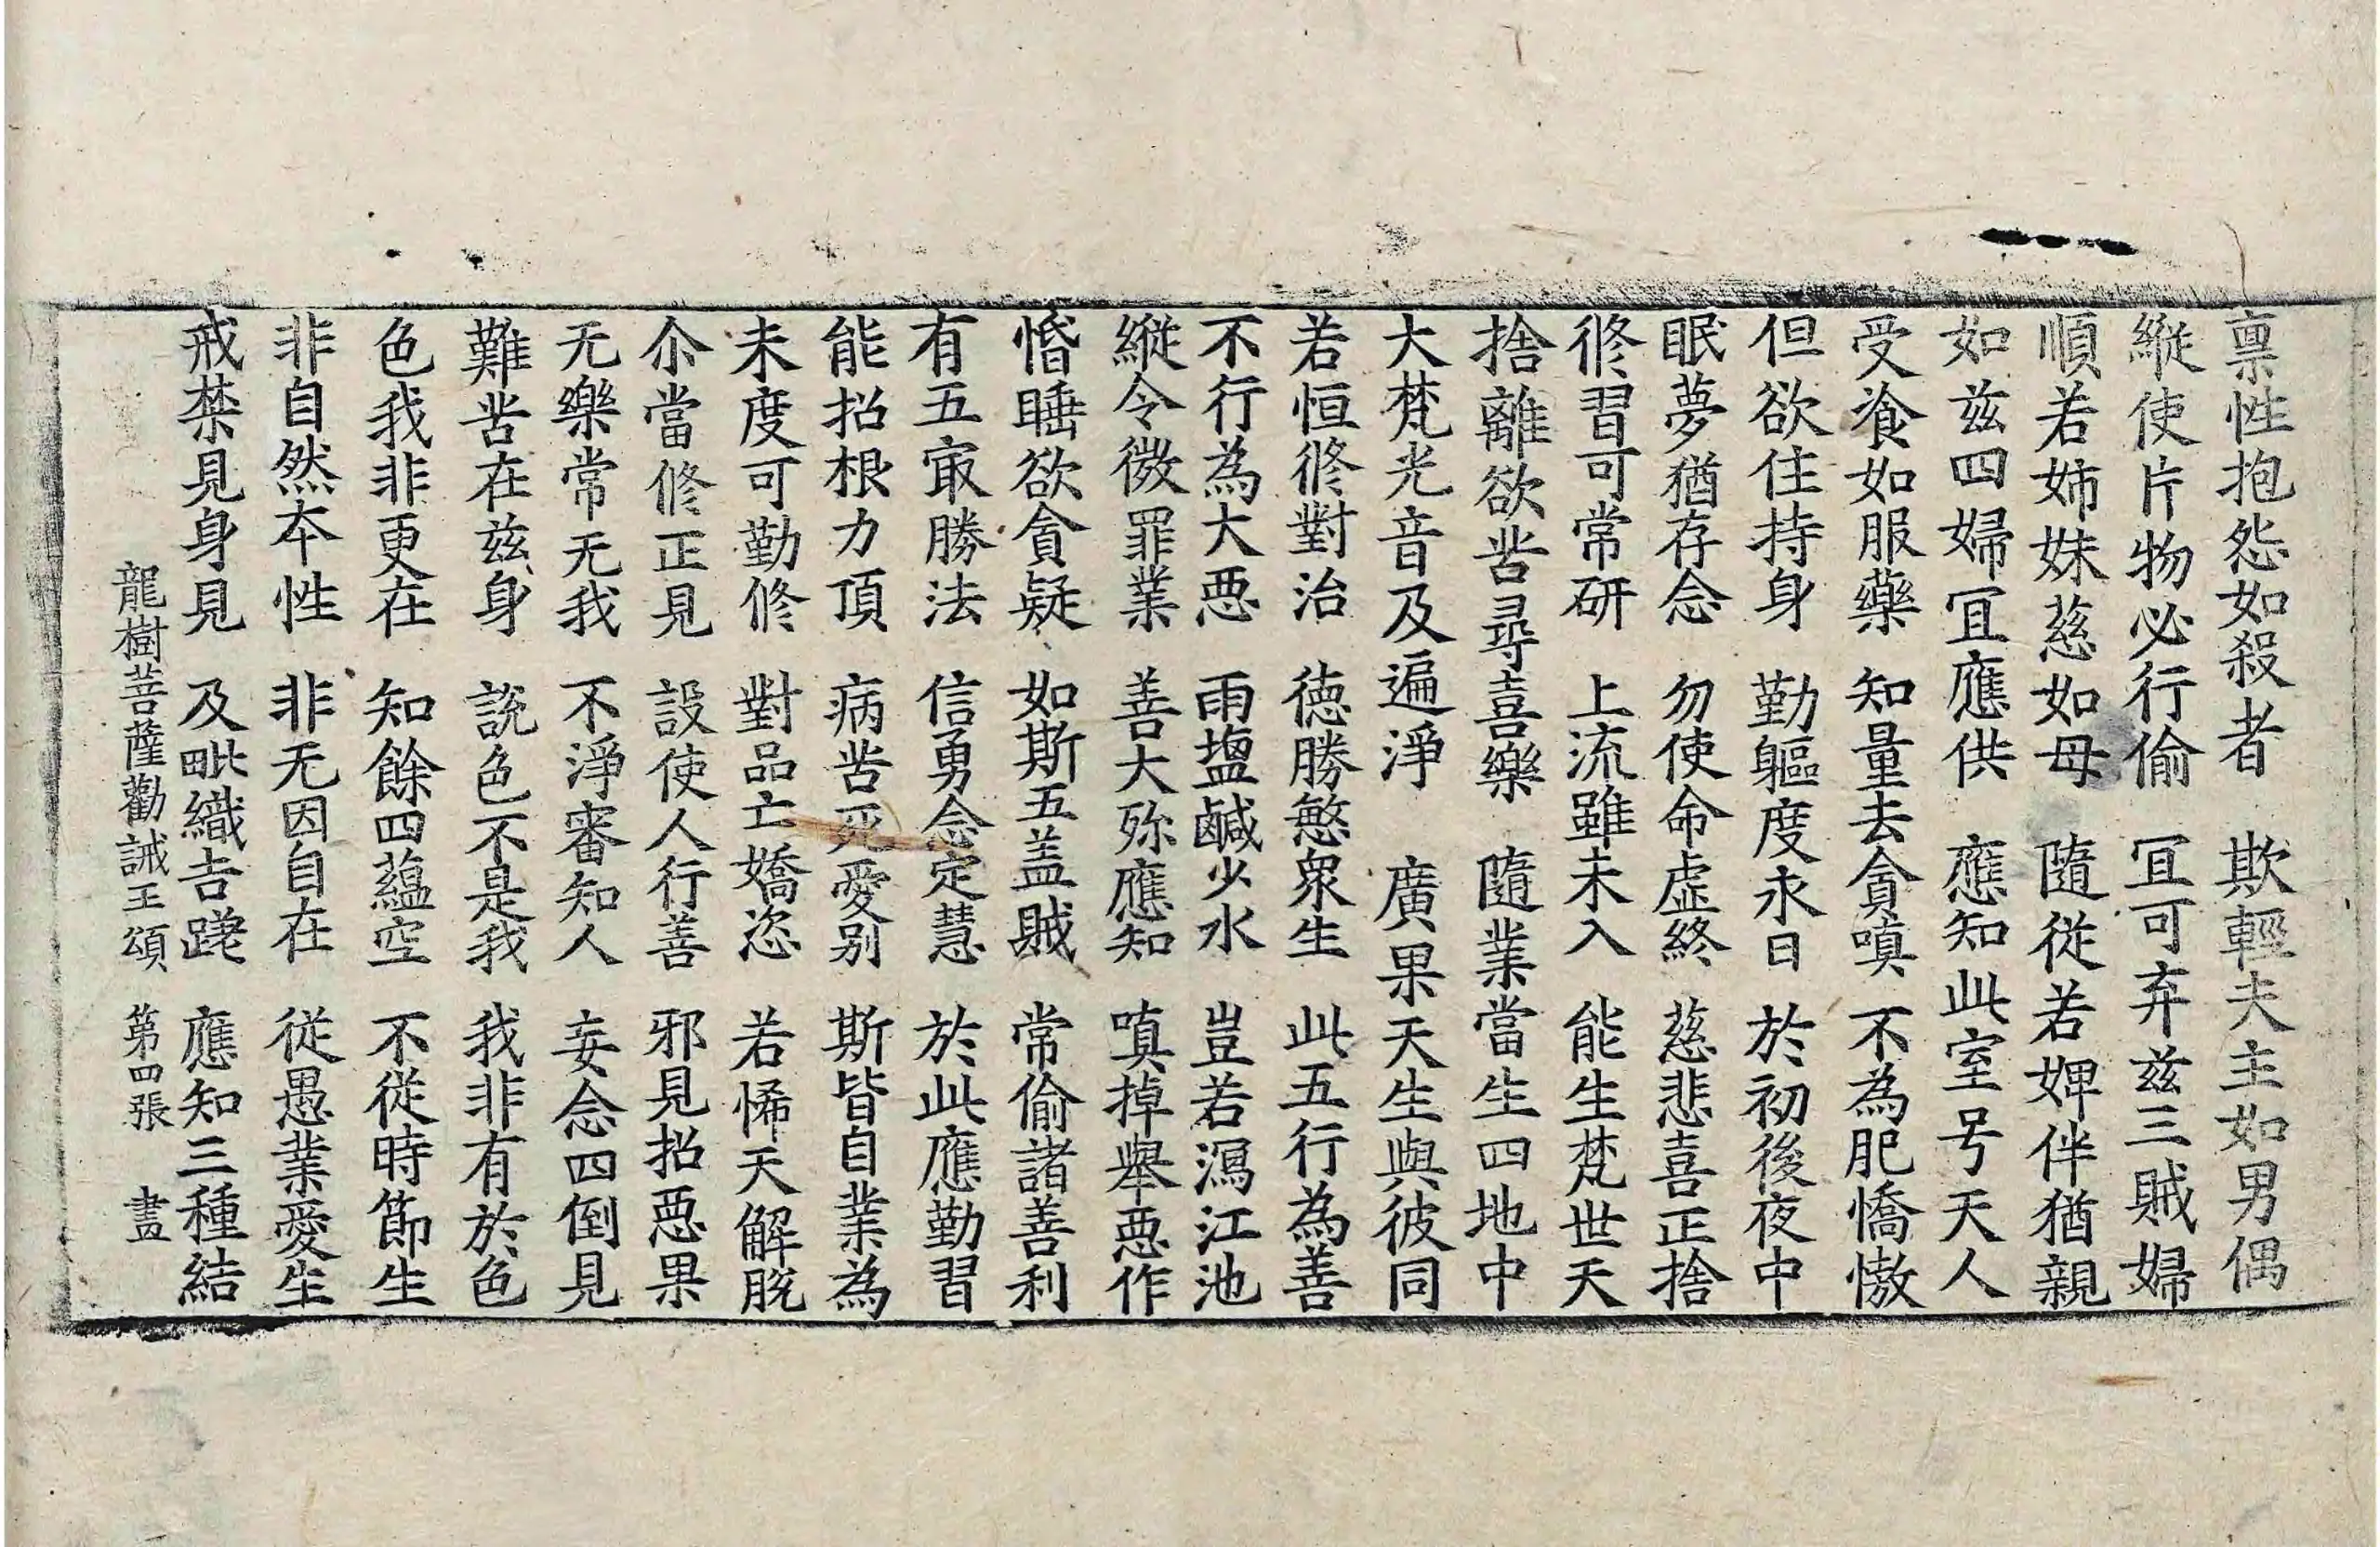 禀性抱怨如殺者 欺輕夫主如男偶
縱使片物必行偷 冝可弃兹三賊婦
順若姉妹慈如母 隨從若婢伴猶親
如兹四婦冝應供 應知此室号天人
受飡如服藥 知量去貪嗔 不為肥憍慠
但欲住持身 勤軀度永日 於初後夜中
眠夢猶存念 勿使命虛終 慈悲喜正捨
修習可常研 上流雖未入 能生梵世天
捨離欲苦尋喜樂 隨業當生四地中
大梵光音及遍淨 廣果天生與彼同
若恒修對治 德勝慜衆生 此五行為善
不行為大惡 雨塩鹹少水 豈若瀉江池
縱令微罪業 善大殄應知 嗔掉舉惡作
惛睡欲貪疑 如斯五盖賊 常偷諸善利
有五㝡勝法 信勇念定慧 於此應勤習
能招根力頂 病苦死愛别 斯皆自業為
未度可勤修 對品亡嬌恣 若悕天解脫
尒當修正見 設使人行善 邪見招惡果
无樂常无我 不淨審知人 妄念四倒見
難苦在兹身 說色不是我 我非有於色
色我非更在 知餘四蘊空 不從時節生
非自然夲性 非无因自在 從愚業愛生
戒禁見身見 及毗織吉蹉 應知三種結
龍樹菩薩勸誡王頌 第四張 畫